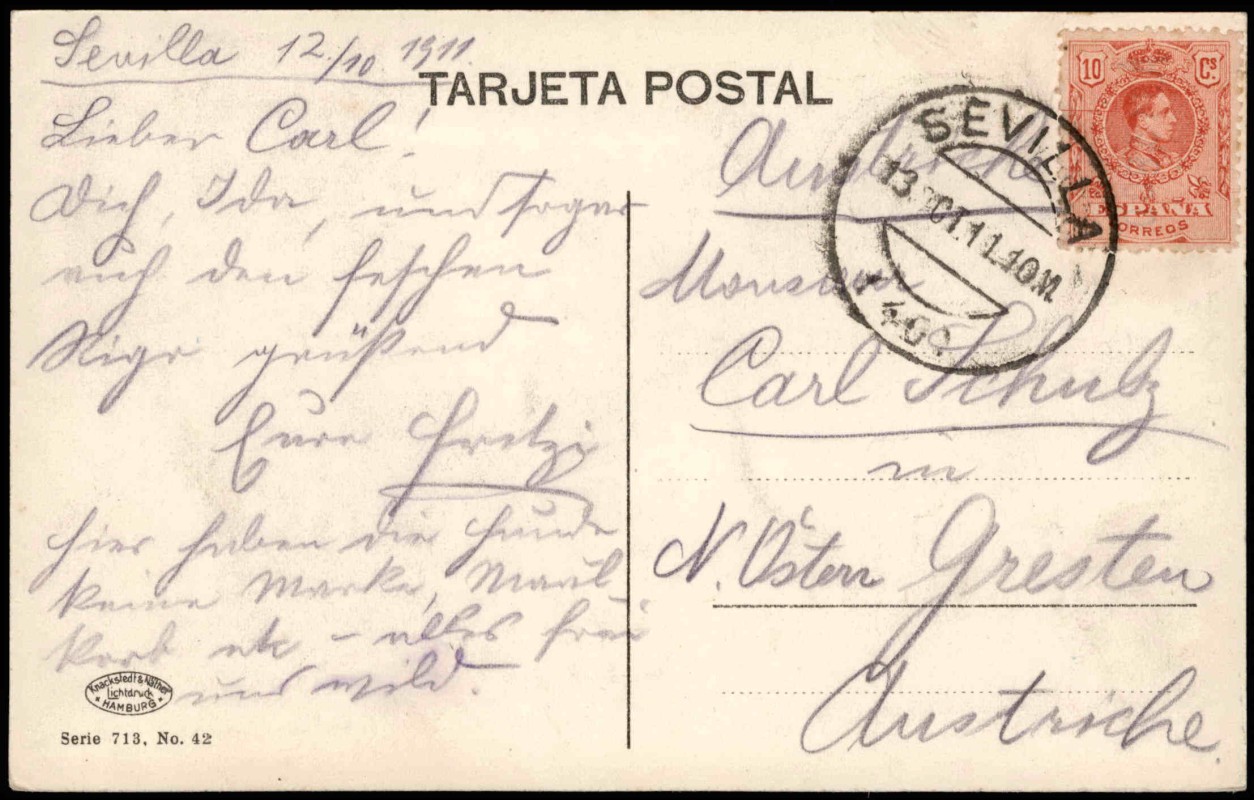 Sevilla 12./10 1911.
TARJETA POSTAL
Lieber Carl!
Dich, Ida, und sogar
auch den feschen
Sigo grüßend
Eure Fritzi
hier haben die Hunde
keine Marke, Maul-
korb etc – alles frei
und wild.
Knackstedt & Näther
Lichtdruck
HAMBURG
Serie 713, No. 42
10 Cs.
ESPAÑA
CORREOS
SEVILLA
13 OCT.11.10M
Autriche
Monsieur
Carl Schulz
in
N. Östern Gresten
Austriche